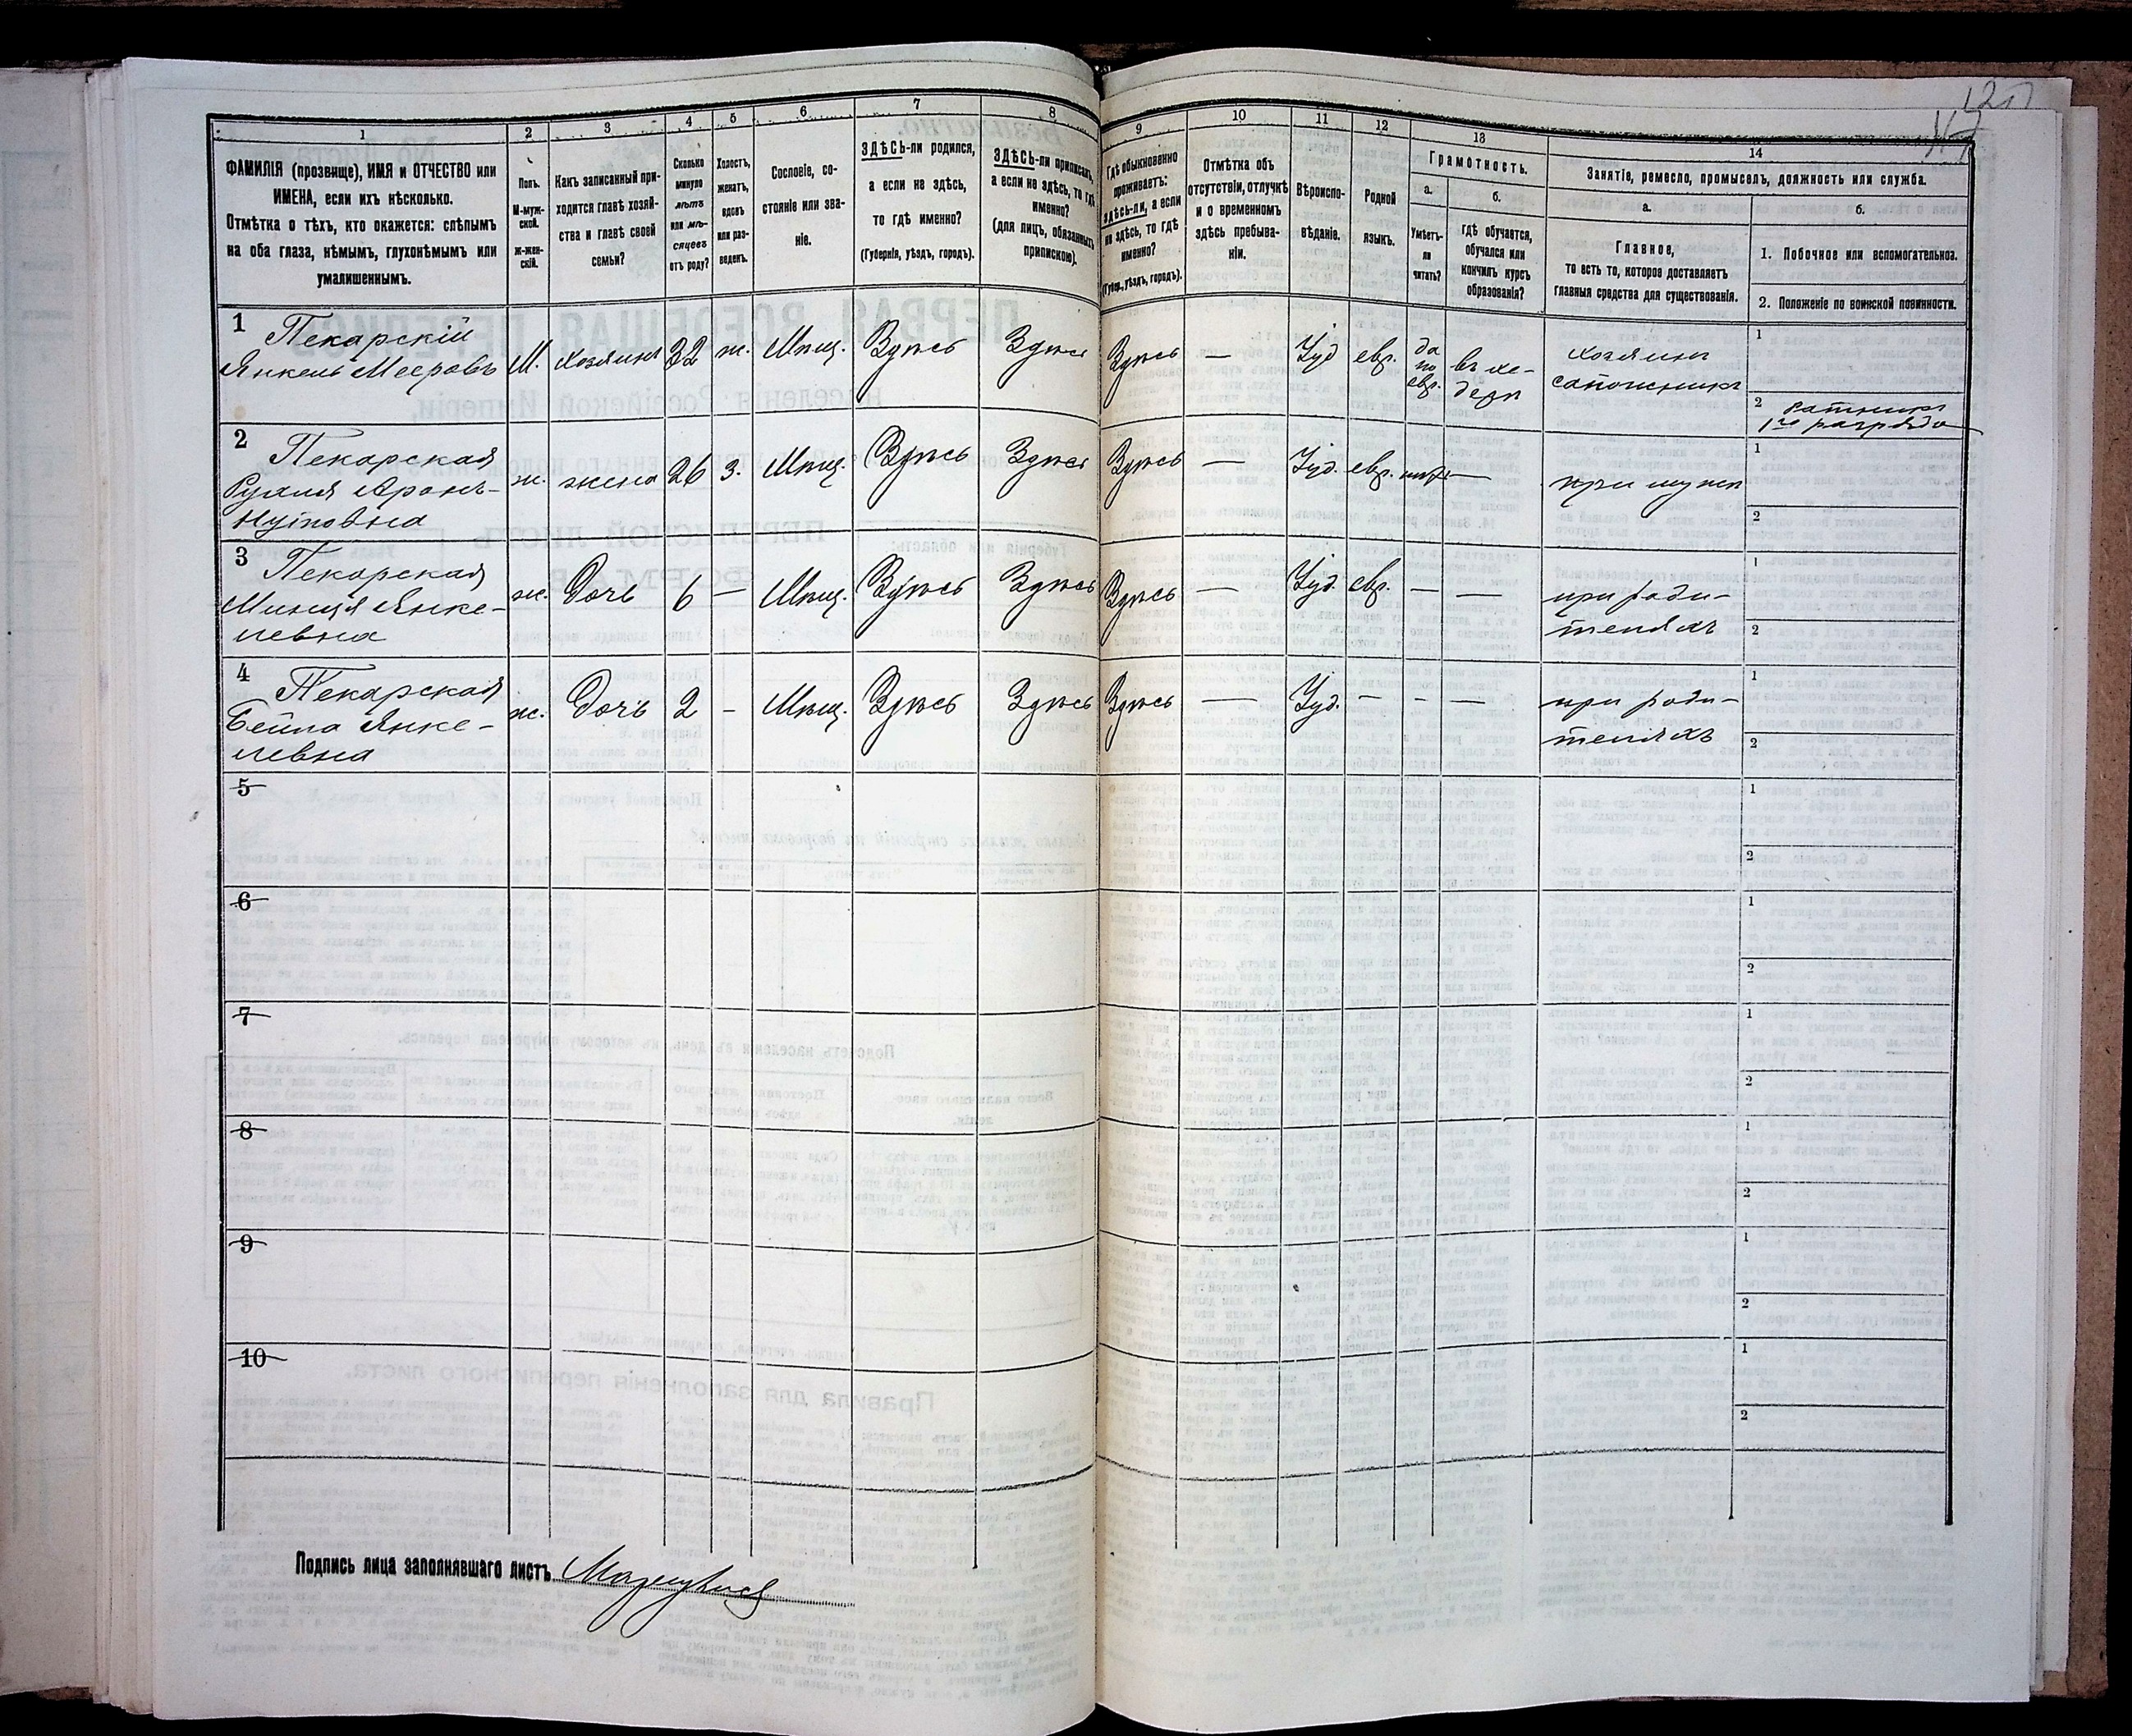 1
2
3
4
5
6
7
8
9
10
11
12
13
14
ФАМИЛІЯ (прозвище), ИМЯ и ОТЧЕСТВО или
ИМЕНА, если ихъ нѣсколько.
Отмѣтка о тѣхъ, кто окажется: слѣпымъ
на оба глаза, нѣмымъ, глухонѣмымъ или
умалишеннымъ.
Полъ.
М-муж-
ской.
ж-жен-
скій.
Какъ записанный при-
ходится главѣ хозяй-
ства и главѣ своей
семьи?
Сколько
минуло
лѣтъ
или мѣ-
сяцевъ
отъ роду?
Холостъ,
женатъ,
вдовъ
или раз-
веденъ.
Сословіе, со-
стояніе или зва-
ніе.
ЗДѢСЬ-ли родился,
а если не здѣсь,
то гдѣ именно?
(Губернія, уѣздъ, городъ).
ЗДѢСЬ-ли приписанъ,
а если не здѣсь, то гдѣ
именно?
(для лицъ, обязанныхъ
припискою).
Гдѣ обыкновенно
проживаетъ:
здѣсь-ли, а если
не здѣсь, то гдѣ
именно?
(Губер., уѣздъ, городъ).
Отмѣтка объ
отсутствіи, отлучкѣ
и о временномъ
здѣсь пребыва-
ніи.
Вѣроиспо-
вѣданіе.
Родной
языкъ.
Грамотность.
а.
Умѣетъ-
ли
читать?
б.
гдѣ обучается,
обучался или
кончилъ курсъ
образованія?
Занятіе, ремесло, промыселъ, должность или служба.
а.
Главное,
то есть то, которое доставляетъ
главныя средства для существованія.
б.
1. Побочное или вспомогательное.
2. Положеніе по воинской повинности.
1 Пекарскій
Янкель Мееровъ
М.
хозяинъ
32
ж.
Мѣщ.
Здѣсь
Здѣсь
Здѣсь
—
Іуд
евр.
да
по
евр.
въ хе-
дерѣ
хозяинъ
сапожникъ
1
2 Ратникъ
1го разряда
2 Пекарская
Рухля Аронъ-
Нутовна
ж.
жена
26
з.
Мѣщ.
Здѣсь
Здѣсь
Здѣсь
—
Іуд.
евр.
нѣтъ
—
при мужѣ
1
2
3 Пекарская
Минця Янке-
левна
ж.
Дочь
6
—
Мѣщ.
Здѣсь
Здѣсь
Здѣсь
—
Іуд.
евр.
—
—
при роди-
теляхъ
1
2
4 Пекарская
Бейла Янке-
левна
ж.
Дочь
2
-
Мѣщ.
Здѣсь
Здѣсь
Здѣсь
—
Іуд.
-
-
—
при роди-
теляхъ
1
2
5
1
2
6
1
2
7
1
2
8
1
2
9
1
2
10
1
2
Подпись лица заполнявшаго листъ